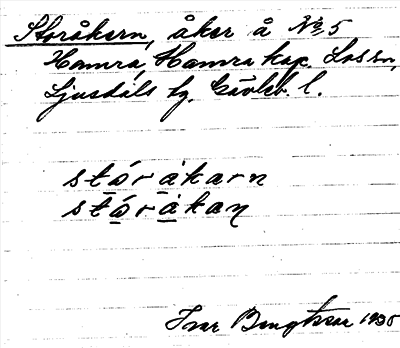 Storåkern, åker å No 5
Hamra, Hamra kap. Los sn,
Ljusdals tg. Gävleb. l.
stórákarn
stórákaṇ
Ivar Bengtsson 1935